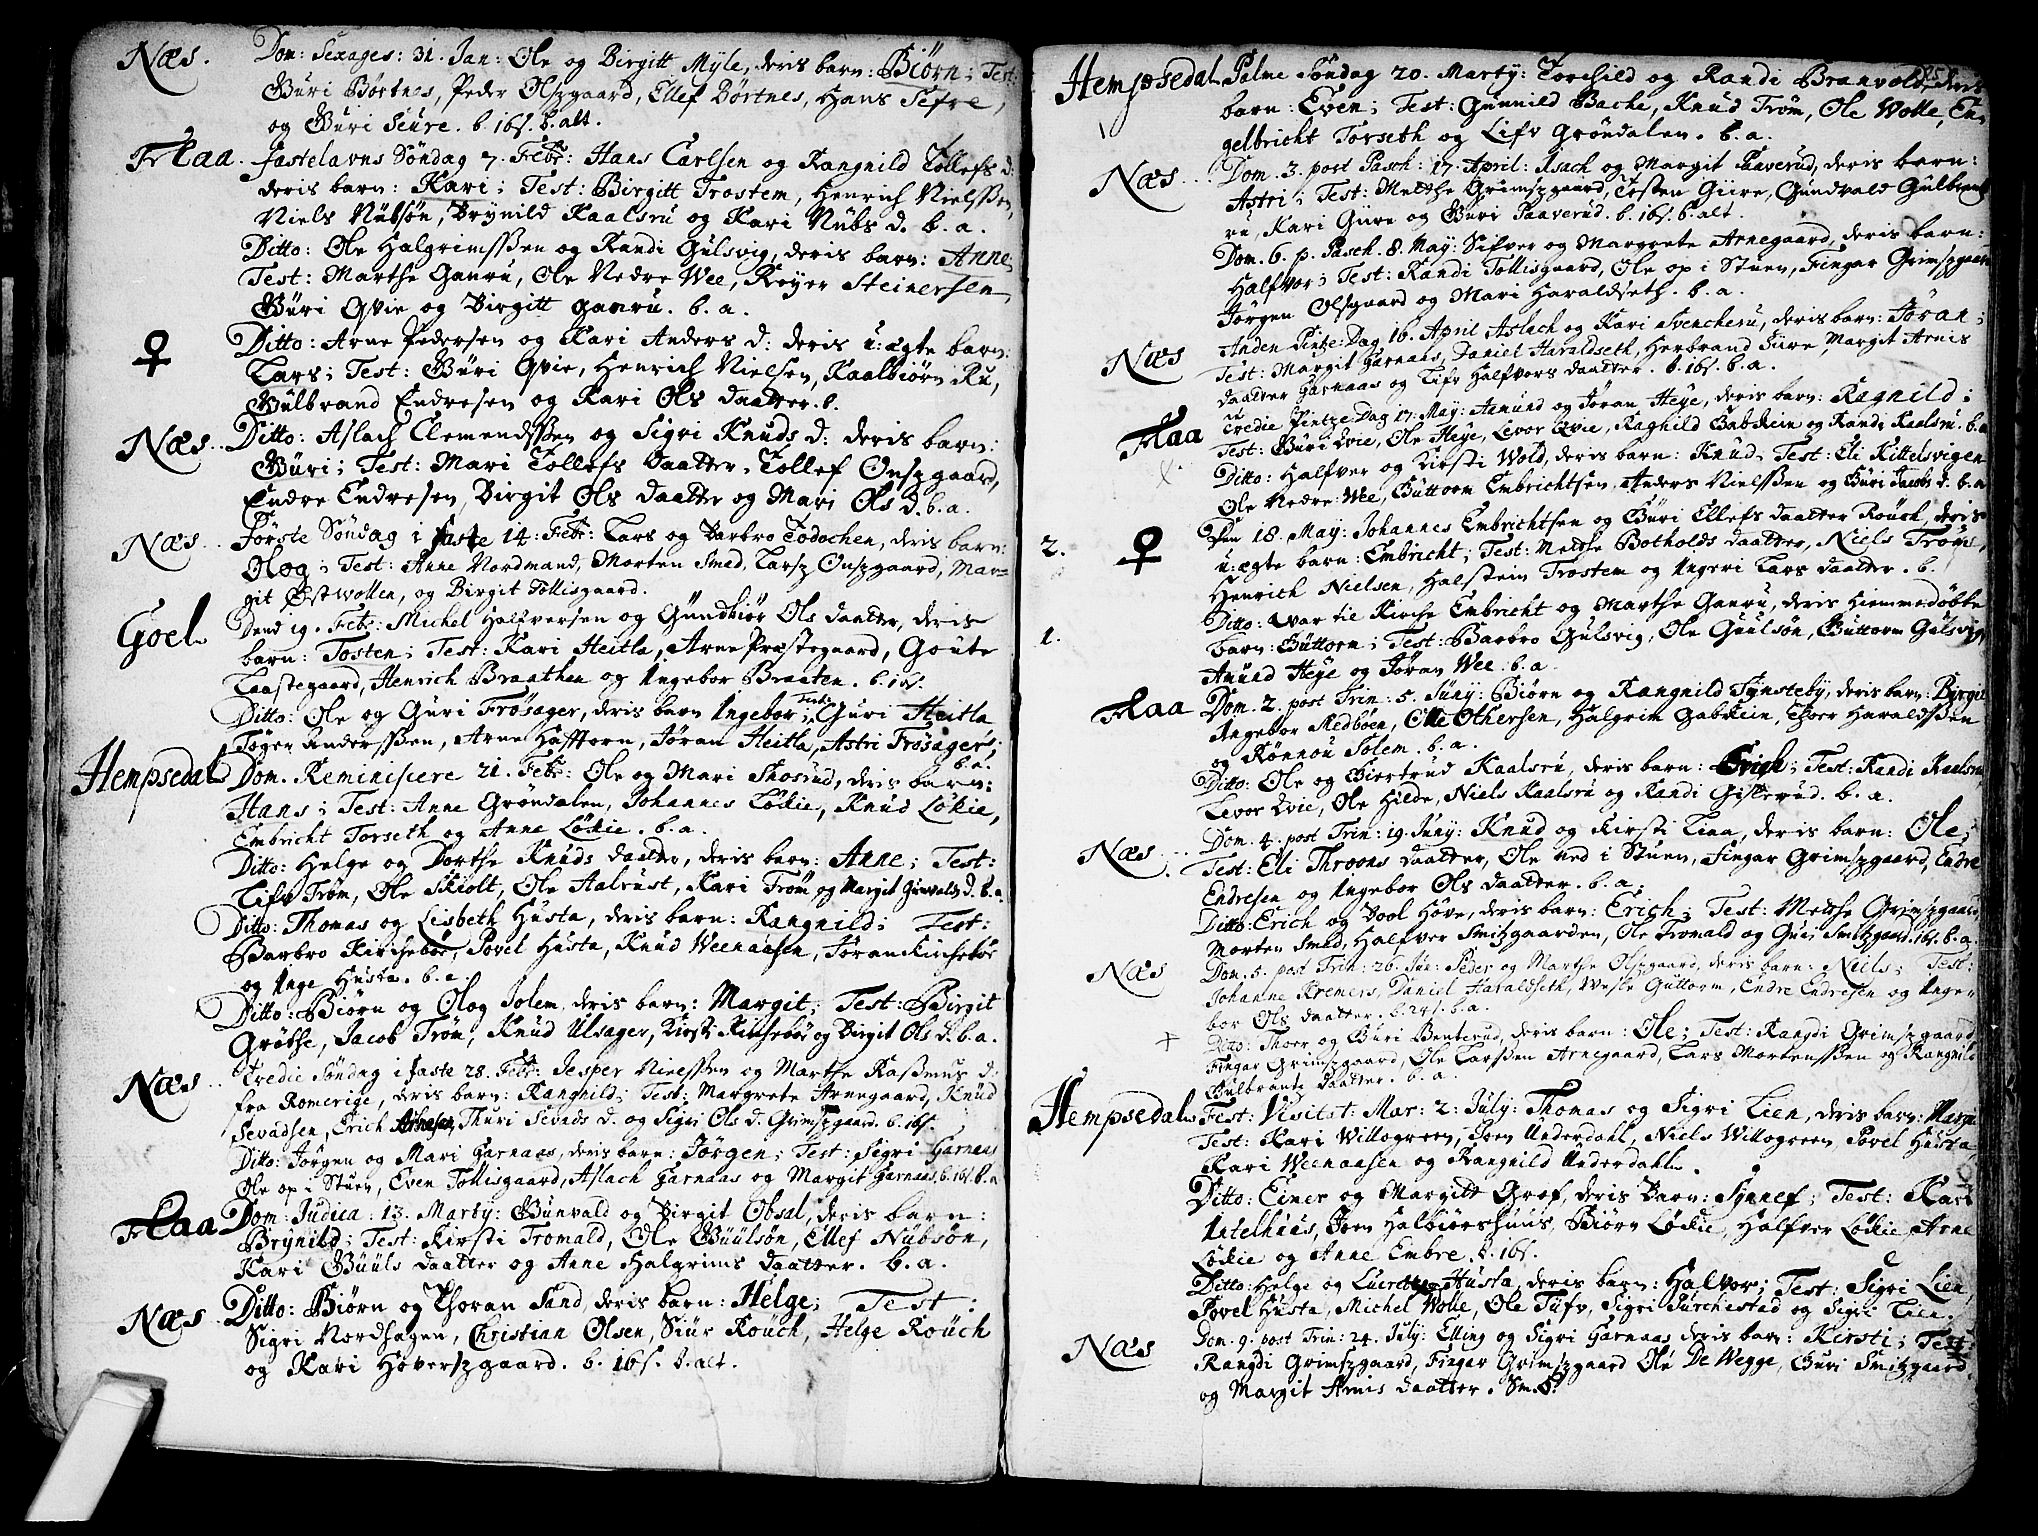 Næs. Dom: Sexages: 31. Jan: Ole og Birgitt Myle, deris barn: Biørn; Test:
Guri Børtnes, Peder Olszgaard, Ellef Børtnes, Hans Sefre,
og Guri Seure. b. 16s. b. alt.
Flaa. Fastelavns Søndag 7. Febr: Hans Carlsen og Rangnild Tollefs d:
deris barn: Kari; Test: Birgitt Trostem, Henrich Nielssen,
Niels Nübsøn, Brynild Kaalsrü og Kari Nübs d. b. a.
Ditto: Ole Halgrimssen og Randi Gülsvig, deris barn: Anne;
Test: Marthe Ganrü, Ole Nedre Wee, Røyer Steinersen,
Güri Qvie og Birgitt Ganrü. b. a.
♀ Ditto: Arne Pedersen og Kari Anders d: deris ü:ægte barn:
Lars; Test: Güri Qvie, Henrich Nielsen, Kaalbiørn Rü,
Gülbrand Endresen og Kari Ols daatter. b.
Næs. Ditto: Aslach Clemendssen og Sigri Knuds d: deris barn:
Güri; Test: Mari Tollefs daatter, Tollef Onszgaard,
Endre Endresen, Birgit Ols daatter og Mari Ols d. b. a.
Næs. Første Søndag i faste 14. Febr: Lars og Barbro Todochen, deris barn:
Olog; Test: Anne Nordmand, Morten Smed, Larsz Onszgaard, Mar-
git Østwollen, og Birgit Tollisgaard.
Goel. Dend 19. Febr: Michel Halfversen og Gündbiør Ols daatter, deris
barn: Tosten; Test: Kari Heitla, Arne Præstegaard, Goüte
Laastegaard, Henrich Braathen og Ingebor Braaten. b. 16s.
Ditto: Ole og Guri Frøsager, deris barn Ingebor; Test: Guri Heitla
Andersen, Arne Hafftorn, Jøran Heitla, Astri Frøsager;
b. a.
Hempsedal Dom. Reminiscere 21. Febr: Ole og Mari Skosrud, deris barn:
Hans; Test: Anne Grøndalen, Johannes Løkie, Knud Løkie,
Embricht Torseth og Anne Løkie. b. a.
Ditto: Helge og Dorthe Knüds daatter, deris barn: Anne; Test:
Lifv Trøm, Ole Skiolt, Ole Aalrust, Kari Trøm og Margit Gunvalds d. b. a.
Ditto: Thomas og Lisbeth Husta, deris barn: Rangnild; Test:
Barbro Kirchebøe, Povel Husta, Knud Weenaasen, Jøran Kirchebøe
og Inge Husta. b. a.
Ditto: Biørn og Olog Solem, deris barn: Margit; Test: Birgit
Grøthe, Jacob Trøm, Knud Ulsager, Kirsti Kirchebøe og Birgit Ols d. b. a.
Næs Tredie Søndag i faste 28. Febr: Jesper Nielssen og Marthe Rasmus d:
fra Romerige, deris barn: Rangnild; Test: Margrete Arnegaard, Knud
Sevadsen, Erich Arnesen, Thuri Sevads d. og Sigri Ols d. Grimszgaard. b. 16s.
Ditto: Jørgen og Mari Garnaas, deris barn: Jørgen; Test: Sigri Garnaas
Ole op i Stuen, Even Tollisgaard, Aslach Garnaas og Margit Garnaas. b. 16s. b. a.
Flaa Dom: Judica: 13. Marty: Gunvald og Birgit Obsal, deris barn:
Brynild; Test: Kirsti Tromald, Ole Güülsøn, Ellef Nübsøn,
Kari Güüls daatter og Anne Halgrims daatter. b. a.
Næs. Ditto: Biørn og Thoran Sand, deris barn: Helge; Test:
Sigri Nordhagen, Christian Olsen, Siür Roüch, Helge Roüch
og Kari Hoverszgaard. b. 16s. b. alt.
Hempsedal Palme Søndag 20. Marty: Torchild og Randi Branvold, deris
barn: Even; Test: Gunnild Bache, Knud Trøm, Ole Wolle, En-
gelbricht Torseth og Lifv Grøndalen. b. a.
Næs Dom. 3. post Pasch: 17. April: Isach og Margit Paaverud, deris barn:
Astri; Test: Metthe Grimszgaard, Tosten Giire, Gundvald Gülbrand
rü, Kari Güre og Güri Paaverud. b. 16s. b. alt.
Dom. 6. p. Pasch. 8. May: Sifver og Margrete Arnegaard, deris barn:
Halfvor; Test: Randi Tollisgaard, Ole op i Stuen, Fingar Grimszgaard
Jørgen Olsgaard og Mari Haraldseth. b. a.
Næs Anden Pintze Dag 16. April Aslach og Kari Svencherü, deris barn: Jøran;
Test: Margit Garnaas, Daniel Haraldseth, Herbrand Siire, Margit Arnis
daatter Garnaas og Lifv Halfvors daatter. b. 16s. b. a.
Flaa Tredie Pintze Dag 17. May: Amund og Jøran Heye, deris barn: Ragnild;
Test: Guri Qvie, Ole Heye, Levor Qvie, Raghild Gabskein og Randi Kaalsrü. b. a
Ditto: Halfver og Kirsti Wold, deris barn: Knud; Test: Eli Kittelsvigen
Ole Nedre Wee, Guttorm Embrichtsen, Anders Nielssen og Güri Jacobs d. b. a
2. ♀ Den 18. May: Johannes Embrichtsen og Güri Ellefs daatter Roüch, deris
u:ægte barn: Embricht; Test: Metthe Botholds daatter, Niels Trøms,
Henrich Nielsen, Halstein Trostem og Ingeri Lars daatter. b.
1. Ditto: war til Kirche Embricht og Marthe Ganrü, deris hiemmedøbte
barn: Güttorm; Test: Barbro Gülsvig, Ole Guulsøn, Güttorm Gülsvig,
Anund Heye og Jøran Wee. b. a.
Flaa Dom. 2. post Trin: 5. Juny: Biørn og Rangnild Synsteby, deris barn: Birgit
Ingebor Medboen, Olle Othersen, Halgrim Gabskein, Thoer Haraldssen
og Rønnou Solem. b. a.
Ditto: Ole og Giertrud Kaalsrü, deris barn: Erich; Test: Randi Kaalsrü,
Levor Qvie, Ole Hilde, Niels Kaalsrü og Randi Gislerud. b. a.
Næs. Dom. 4. post Trin: 19. Juny: Knud og Kirsti Liaa, deris barn: Ole;
Test: Eli Throons daatter, Ole ned i Stuen, Fingar Grimszgaard, Endre
Endresen og Ingebor Ols daatter. b. a.
Ditto: Erich og Joel Hove, deris barn: Erich; Test: Metthe Grimszgaard,
Morten Smed, Halfver Smitzgaarden, Ole Tromald og Guri Smitzgaard. 16s. b. a.
Næs Dom. 5. post Trin: 26. Jun: Peder og Marthe Olszgaard, deris barn: Niels; Test:
Johanne Kremers, Daniel Haraldseth, Wesle Guttorm, Endre Endresen og Inge-
bor Ols daatter. b. 24s. b. a.
+ Dito: Thoer og Guri Benterud, deris barn: Ole; Test: Rangdi Grimszgaard,
Fingar Grimszgaard, Ole Larssen Arnegaard, Lars Mortenssen og Rangnild
Gulbrants daatter. b. a.
Hempsedal Fest: Visitat: Mar: 2. July: Thomas og Sigri Lien, deris barn: Margit
Test: Kari Willogreen, Joen Underdahl, Niels Willogreen, Povel Husta
Kari Weenaasen og Rangnild Underdahl.
Ditto: Einer og Margitt Grøf, deris barn: Synnef; Test: Kari
Intelhuus, Joen Halbiørshuus, Biørn Løkie, Halfver Løkie Arne
Løkie og Anne Embre. b. 16s.
Ditto: Helge og Husta, deris barn: Halvor; Test: Sigri Lien,
Povel Husta, Michel Wolle, Ole Tyfv, Sigri Surchestad og Sigri Lien.
Næs Dom. 9. post Trin: 24. July: Elling og Sigri Garnaas deris barn: Kirsti; Test:
Rangdi Grimszgaard, Fingar Grimszgaard Ole De Wegge, Guri Smitzgaard
og Margit Arnis daatter.